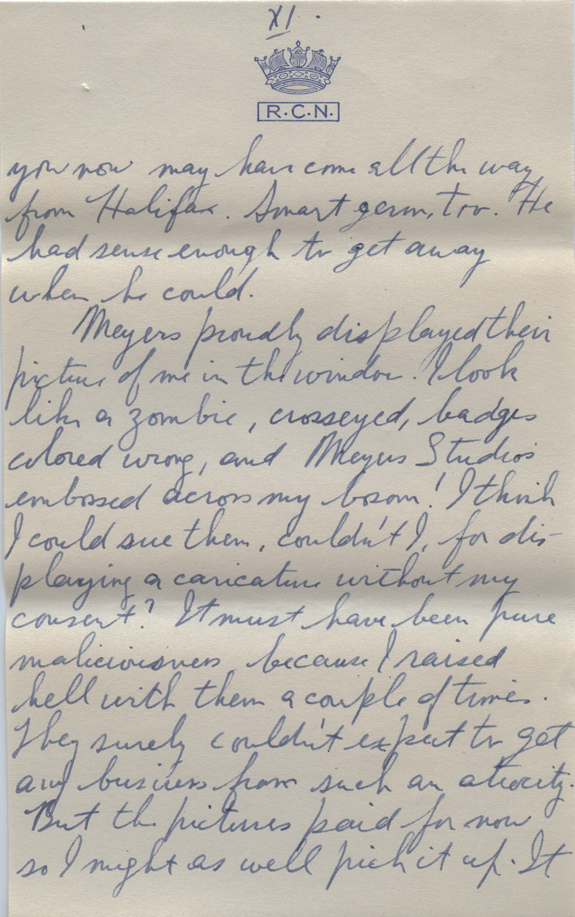 XI.
R.C.N.
you now may have come all the way
from Halifax. Smart germ, too. He
had sense enough to get away
when he could.
Meyers proudly displayed their
picture of me in the window. I look
like a zombie, crosseyed, badges
colored wrong, and Meyers Studios
embossed across my bosom! I think
I could sue them, couldn't I, for dis-
playing a caricature without my
consent? It must have been pure
maliciousness because I raised
hell with them a couple of times.
They surely couldn't expect to get
any business from such an atrocity.
But the pictures paid for now
so I might as well pick it up. It